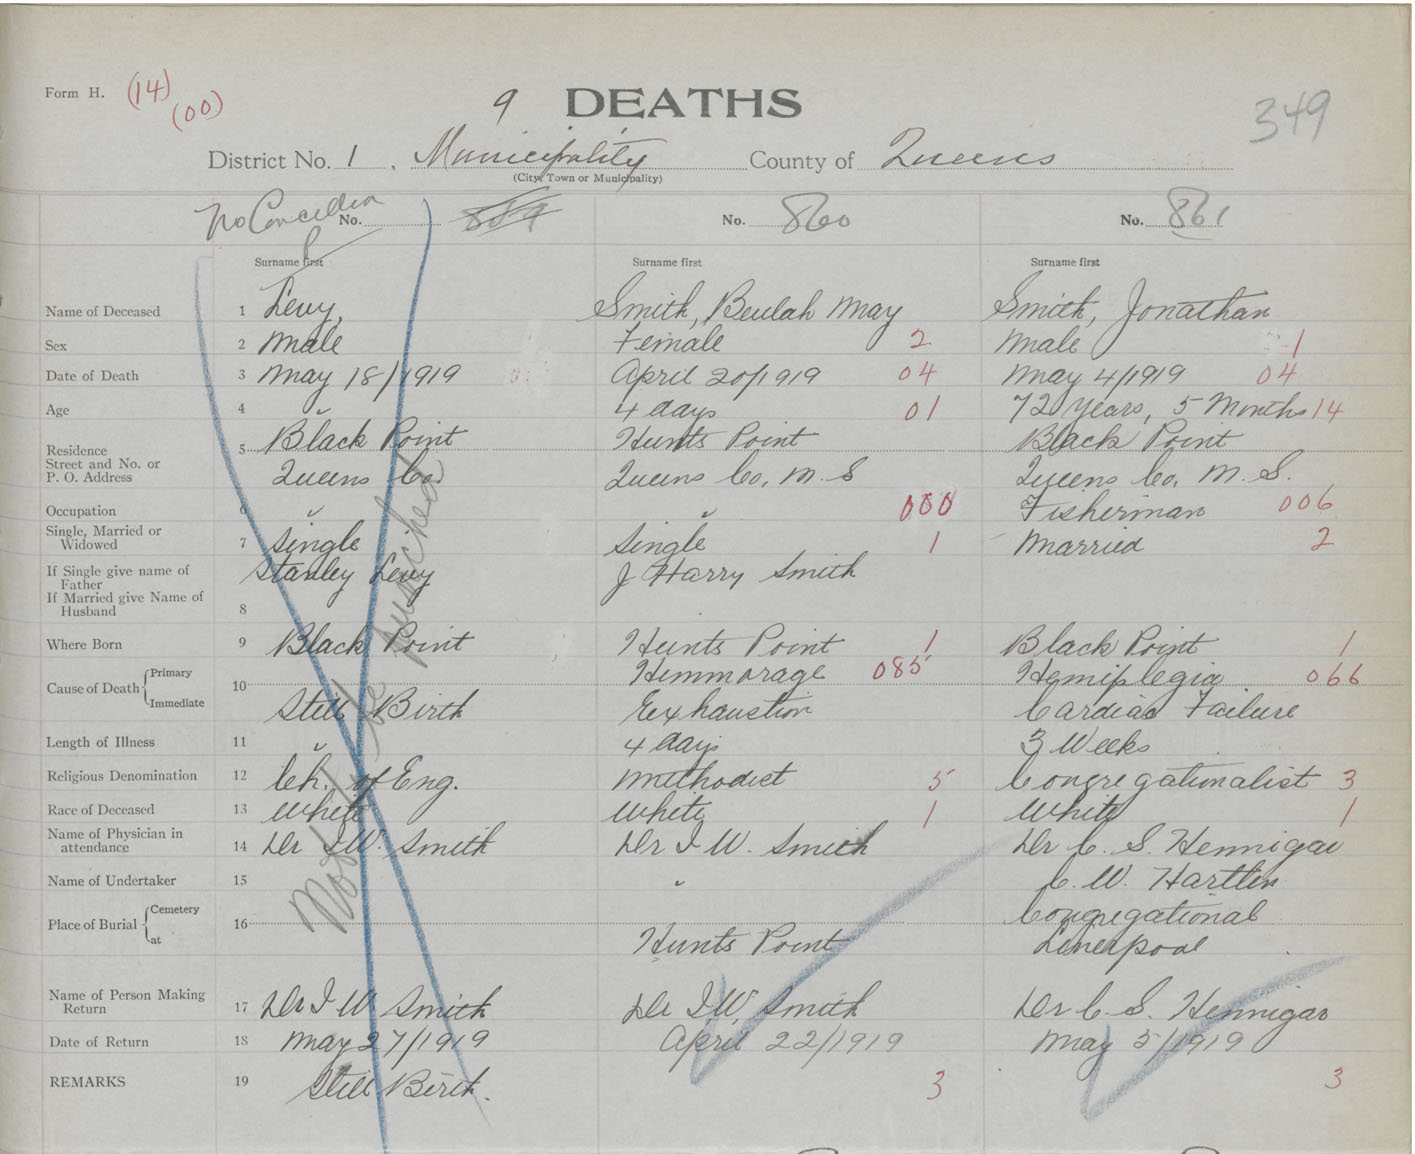 Form H. (14)
(00)
9 DEATHS
349
District No. 1, Municipality County of Queens
(City, Town or Municipality)
No Concelled No. 859 No. 860 No. 861
Surname first Surname first Surname first
Name of Deceased 1 Levy, Smith, Beulah May Smith, Jonathan
Sex 2 Male Female 2 Male 1
Date of Death 3 May 18/1919 April 20/1919 04 May 4/1919 04
Age 4 " 4 days 01 72 Years, 5 Months 14
Residence 5 Black Point Hunts Point Black Point
Street and No. or
P. O. Address Queens Co. Queens Co, N. S Queens Co, N. S.
Occupation 6 " " 000 Fisherman 006
Single, Married or
Widowed 7 Single Single 1 Married 2
If Single give name of
Father Stanley Levy J Harry Smith
If Married give Name of
Husband 8
Where Born 9 Black Point Hunts Point 1 Black Point 1
Cause of Death Primary 10 Hemmorage 085 Hemiplegia 066
Immediate Still Birth Exhaustion Cardiac Failure
Length of Illness 11 " 4 days 3 Weeks
Religious Denomination 12 Ch. of Eng. Methodist 5 Congregationalist 3
Race of Deceased 13 White White 1 White 1
Name of Physician in
attendance 14 Dr I W. Smith Dr I W. Smith Dr C. S. Hennigar
Name of Undertaker 15 " C. W. Hartlen
Place of Burial Cemetery 16 Congregational
at Hunts Point Liverpool
Name of Person Making
Return 17 Dr I W Smith Dr I W, Smith Dr C. S. Hennigar
Date of Return 18 May 27/1919 April 22/1919 May 5/1919
REMARKS 19 Still Birth. 3 3
Not to be punched